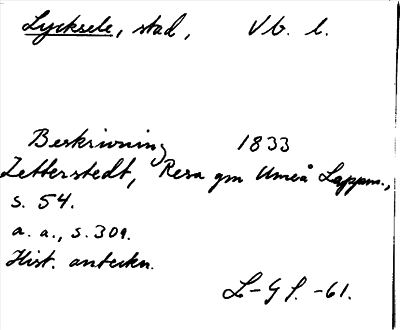 Lycksele, stad, Vb. l.
Beskrivning 1833
Zetterstedt, Resa gm Umeå Lappm.,
s. 54.
a. a., s. 309.
Hist. anteckn.
L-G f. -61.